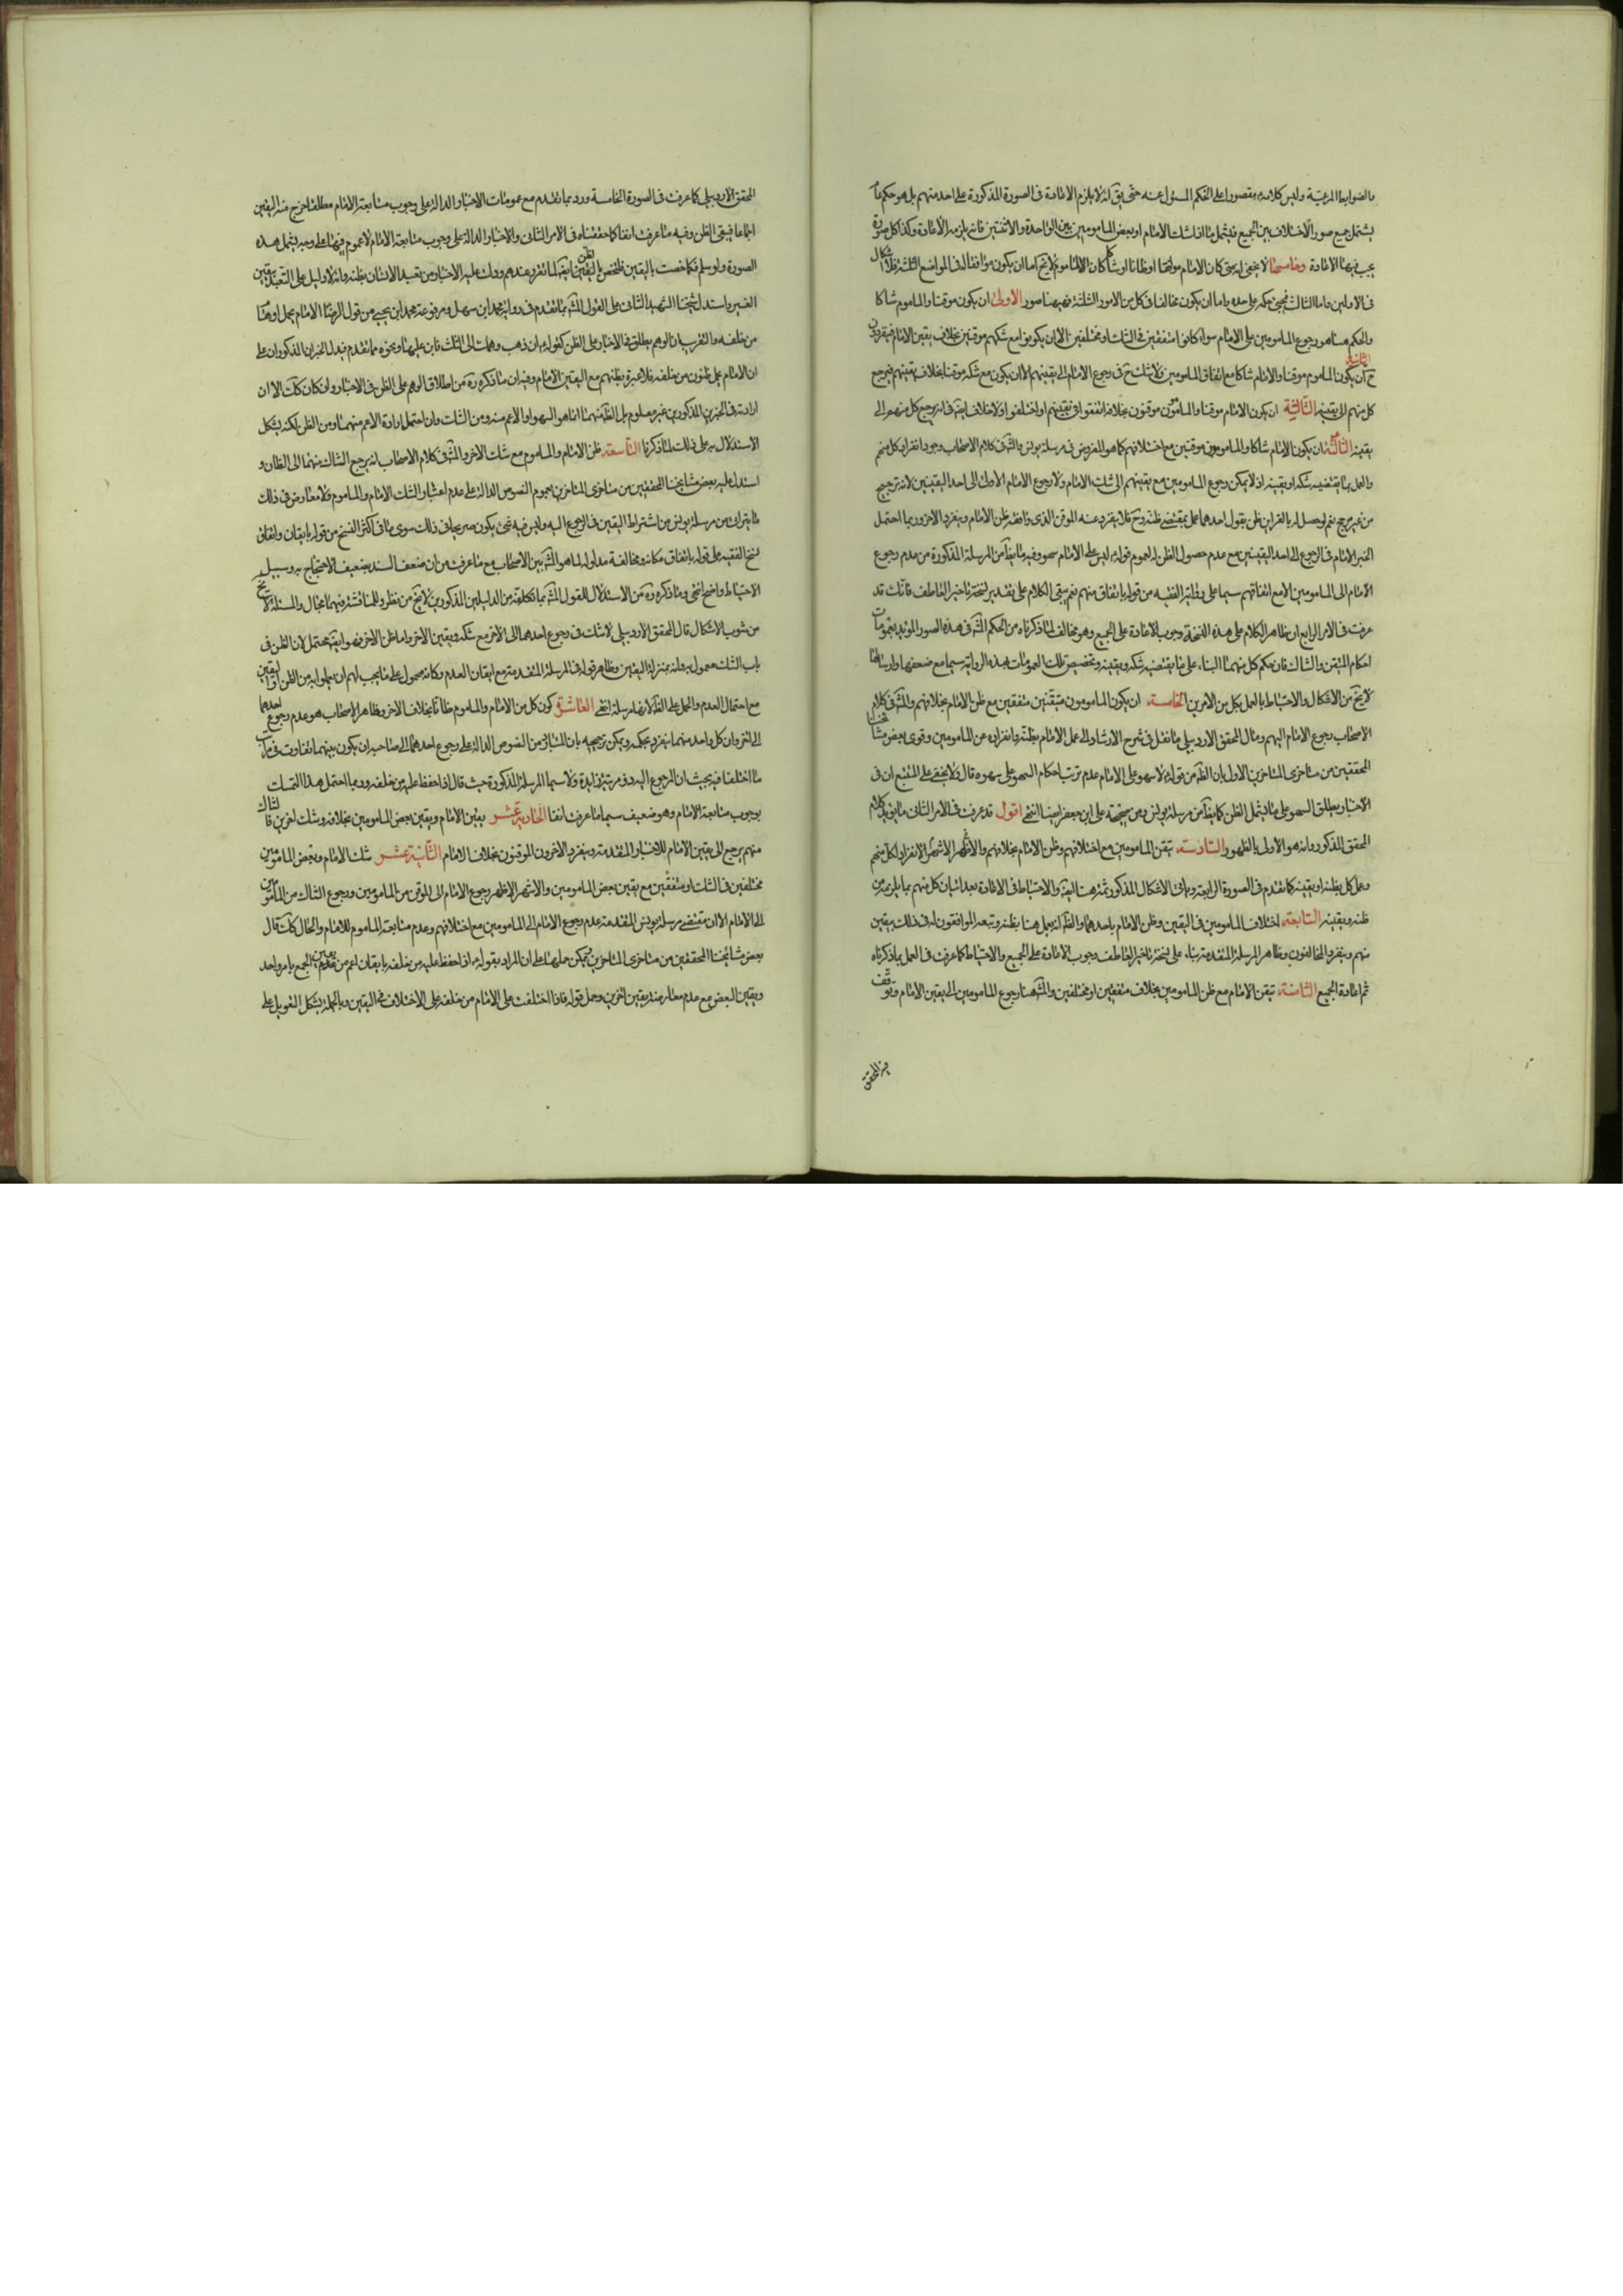 والضوابط المرعيّة وليس كلامه مقصورا على الحكم المسئول عنه حتى يق انه لا يلزم الاعادة فى الصورة المذكورة على احد منهم بل هو حكم عام
يشتمل جميع صور الاختلاف بين الجميع فيشمل ما اذا شك الامام او بعض المامومين بين الواحدة والاثنتين فانه يلزمه الاعادة وكذا كل صورة
يجب فيها الاعادة وخامسها لا يخفى انه متى كان الامام موقنا او ظانا او شاكا كان الماموم لا يخ اما ان يكون موافقا له فى المواضع الثلثة فلا اشكال
فى الاولين واما الثالث فيجئ حكمه على حده واما ان يكون مخالفا فى كل من الامور الثلثة فههنا صور الاولى ان يكون موقنا والماموم شاكا
والحكم هنا هو رجوع المامومين على الامام سواء كانوا متفقين فى الشك او مختلفين الا ان يكونوا مع شكهم موقنين بخلاف يقين الامام فينفردون
ح الثانية ان يكون الماموم موقنا والامام شاكا مع اتفاق المامومين ولا شك ح فى رجوع الامام الى يقينهم الا ان يكون مع شكه موقنا بخلاف يقينهم فيرجع
كل منهم الى يقينه الثالثة ان يكون الامام موقنا والمامون موقنون بخلافه اتفقوا فى يقينهم او اختلفوا ولا خلاف ايضا فى انه يرجع كل منهم الى
يقينه الرابعة ان يكون الامام شاكا والمامومون موقنين مع اختلافهم كما هو المفروض فى مرسلة يونس والمش فى كلام الاصحاب وجوب انفراد كل منهم
والعمل بما يقتضيه شكه او يقينه اذ لا يمكن رجوع المامومين مع يقينهم الى شك الامام ولا رجوع الامام الاول الى احد اليقينين لانه ترجيح
من غير مرجح نعم لو حصل له بالقراين ظن بقول احدهما عمل بمقتضى ظنه وح فلا ينفرد عنه الموقن الذى وافقه ظن الامام وينفرد الاخر وربما احتمل
الخبر الامام فى الرجوع الى احد اليقينين مع عدم حصول الظن له لعموم قوله ليس على الامام سهو وفيه ما يظهر من المرسلة المذكورة من عدم رجوع
الامام الى المامومين الا مع اتفاقهم سيما على رواية الفقيه من قوله باتفاق منهم نعم يبقى الكلام على تقدير نسخة تاخير العاطف فانك قد
عرفت فى الامر الرابع ان ظاهر الكلام على هذه النسخة وجوب الاعادة على الجميع وهو مخالف لما ذكرناه من الحكم المش فى هذه الصور المؤيد بعمومات
احكام المتيقن والشاك فان حكم كل منهما البناء على ما يقتضيه شكه ويقينه وتخصيص تلك العمومات بهذه الرواية سيما مع ضعفها وارسالها
لا يخ من الاشكال والاحتياط بالعمل بكل من الامرين الخامسة ان يكون المامومون متيقنين متفقين مع ظن الامام بخلافهم والمش فى كلام
الاصحاب رجوع الامام اليهم ومال المحقق الاردبيلى ما نقل فى شرح الارشاد الى عمل الامام بظنه وانفراده عن المامومين وقوى بعض مشايخنا
المحققين من متاخرى المتاخرين الاول بان الظ من قوله لا سهو على الامام عدم ترتب احكام السهو على سهوه قال ولا يخفى على المتتبع ان فى
الاخبار يطلق السهو على ما يشمل الظن كما يظهر من مرسلة يونس ومن صحيحة على ابن جعفر ايضا انتهى اقول قد عرفت فى الامر الثانى ما يؤيد كلام
المحقق المذكور وانه هو الاولى بالظهور السادسة تيقن المامومين مع اختلافهم وظن الامام بخلافهم والاظهر الاشهر الانفراد لكل منهم
وعمل كل بظنه او يقينه كما تقدم فى الصورة الرابعة وياتى الاشكال المذكور ثمة هنا ايضا والاحتياط فى الاعادة بعد اتيان كل منهم بما يلزمه من
ظنه ويقينه السابعة اختلاف المامومين فى اليقين وظن الامام باحدهما والظ انه يعمل هنا بظنه وتبعه الموافقون له فى ذلك بيقين
منهم وينفرد المخالفون وظاهر المرسلة المتقدمة بناء على نسخة تاخير العاطف وجوب الاعادة على الجميع والاحتياط كما عرفت فى العمل بما ذكرناه
ثم اعادة الجميع الثامنة تيقن الامام مع ظن المامومين بخلافه متفقين او مختلفين والمش هنا رجوع المامومين الى يقين الامام وتوقف
فيه المحقق
المحقق الاردبيلى كما عرفت فى الصورة الخامسة ورد بما تقدم مع عمومات الاخبار الدالة على وجوب متابعة الامام مطلقا خرج منه اليقين
اجماعا فيبقى الظن وفيه ما عرفت انفا كما حققناه فى الامر الثانى والاخبار الدالة على وجوب متابعة الامام لا عموم فيها على وجه يشمل هذه
الصورة ولو سلم فكما خصت باليقين فلتخص بالظن ايضا لما تقرر عندهم ودلت عليه الاخبار من تعبد الانسان بظنه وانه لا دليل على التعبد بيقين
الغير واستدل شيخنا الشهيد الثانى على القول المش بما تقدم فى رواية محمد ابن سهل ومرفوعة محمد ابن يحيى من قول الرضا الامام يحمل اوهام
من خلفه والتقريب ان الوهم يطلق فى الاخبار على الظن كقوله ان ذهب وهمك الى الثلث فابن عليها ونحوه مما تقدم فيدل الخبران المذكوران على
ان الامام يحمل ظنون من خلفه فلا عبرة بظنهم مع اليقين الامام وفيه ان ما ذكره ره من اطلاق الوهم على الظن فى الاخبار وان كان كذلك الا ان
ارادته فى الخبرين المذكورين غير معلوم بل الظ منهما انما هو السهو او الاعم منه ومن الشك وان احتمل ارادة الاعم منهما ومن الظن لكنه يشكل
الاستدلال به على ذلك لما ذكرنا التاسعة ظن الامام والماموم مع شك الاخر والمش فى كلام الاصحاب انه يرجع الشاك منهما الى الظان و
استدل عليه بعض مشايخنا المحققين من متاخرى المتاخرين بعموم النصوص الدالة على عدم اعتبار الشك الامام والماموم ولا معارض فى ذلك
ما يتراى من مرسلة يونس من اشتراط اليقين فى الرجوع اليه وليس فيه شئ يكون صريحا فى ذلك سوى ما فى اكثر النسخ من قوله بايقان واتفاق
نسخ الفقيه على قوله باتفاق مكانه ومخالفة مدلوله لما هو المش بين الاصحاب مع ما عرفت من ان ضعف السند يضعف الاحتجاج به وسبيل
الاحتياط واضح انتهى وما ذكره ره من الاستدلال للقول المش بما تكلفه من الدليلين المذكورين لا يخ من نظر وللمناقشة فيهما مجال والمسئلة لا تخ
من شوب الاشكال قال المحقق الاردبيلى لا شك فى رجوع احدهما الى الاخر مع شكه ويقين الاخر واما ظن الاخر فهو ايضا محتمل لان الظن فى
باب الشك معمول به وانه بمنزلة اليقين وظاهر قوله فى المرسلة المتقدمة مع ايقان العدم وكانه محمول على ما يجب لهم ان يعملوا به من الظن او اليقين
مع احتمال العدم والعمل على الظ لانها مرسلة انتهى العاشرة كون كل من الامام والماموم ظانا بخلاف الاخر وظاهر الاصحاب هو عدم رجوع احدهما
الى الاخر وان كل واحد منهما ينفرد بحكمه ويمكن توجيهه بان المتبادر من النصوص الدالة على رجوع احدهما الى صاحبه ان يكون بينهما تفاوت فى مراتب
ما اختلفا فيه بحيث ان الرجوع اليه ذو مرتبة زايدة ولا سيما المرسلة المذكورة حيث قال اذا حفظ عليه من خلفه وربما احتمل هنا التمسك
بوجوب متابعة الامام وهو ضعيف سيما لما عرفت انفا الحادية عشر يقين الامام ويقين بعض المامومين بخلافه وشك اخرين فالشاك
منهم يرجع الى يقين الامام للاخبار المتقدمة وينفرد الاخرون الموقنون بخلاف الامام الثانية عشر شك الامام وبعض المامومين
مختلفين فى الشك او متفقين مع يقين بعض المامومين والاشهر الاظهر رجوع الامام الى الموقن من المامومين ورجوع الشاك من المامومين
الى الامام الا ان مقتضى مرسلة يونس المتقدمة عدم رجوع الامام الى المامومين مع اختلافهم وعدم متابعة الماموم للامام والحال كذلك قال
بعض مشايخنا المحققين من متاخرى المتاخرين ويمكن حملها على ان المراد بقوله اذا حفظ عليه من خلفه بايقان اعم من يقين الجميع بامر واحد
ويقين البعض مع عدم معارضة يقين اخرين وحمل قوله فاذا اختلفت على الامام من خلفه على الاختلاف فى اليقين وبالجملة يشكل التعويل على